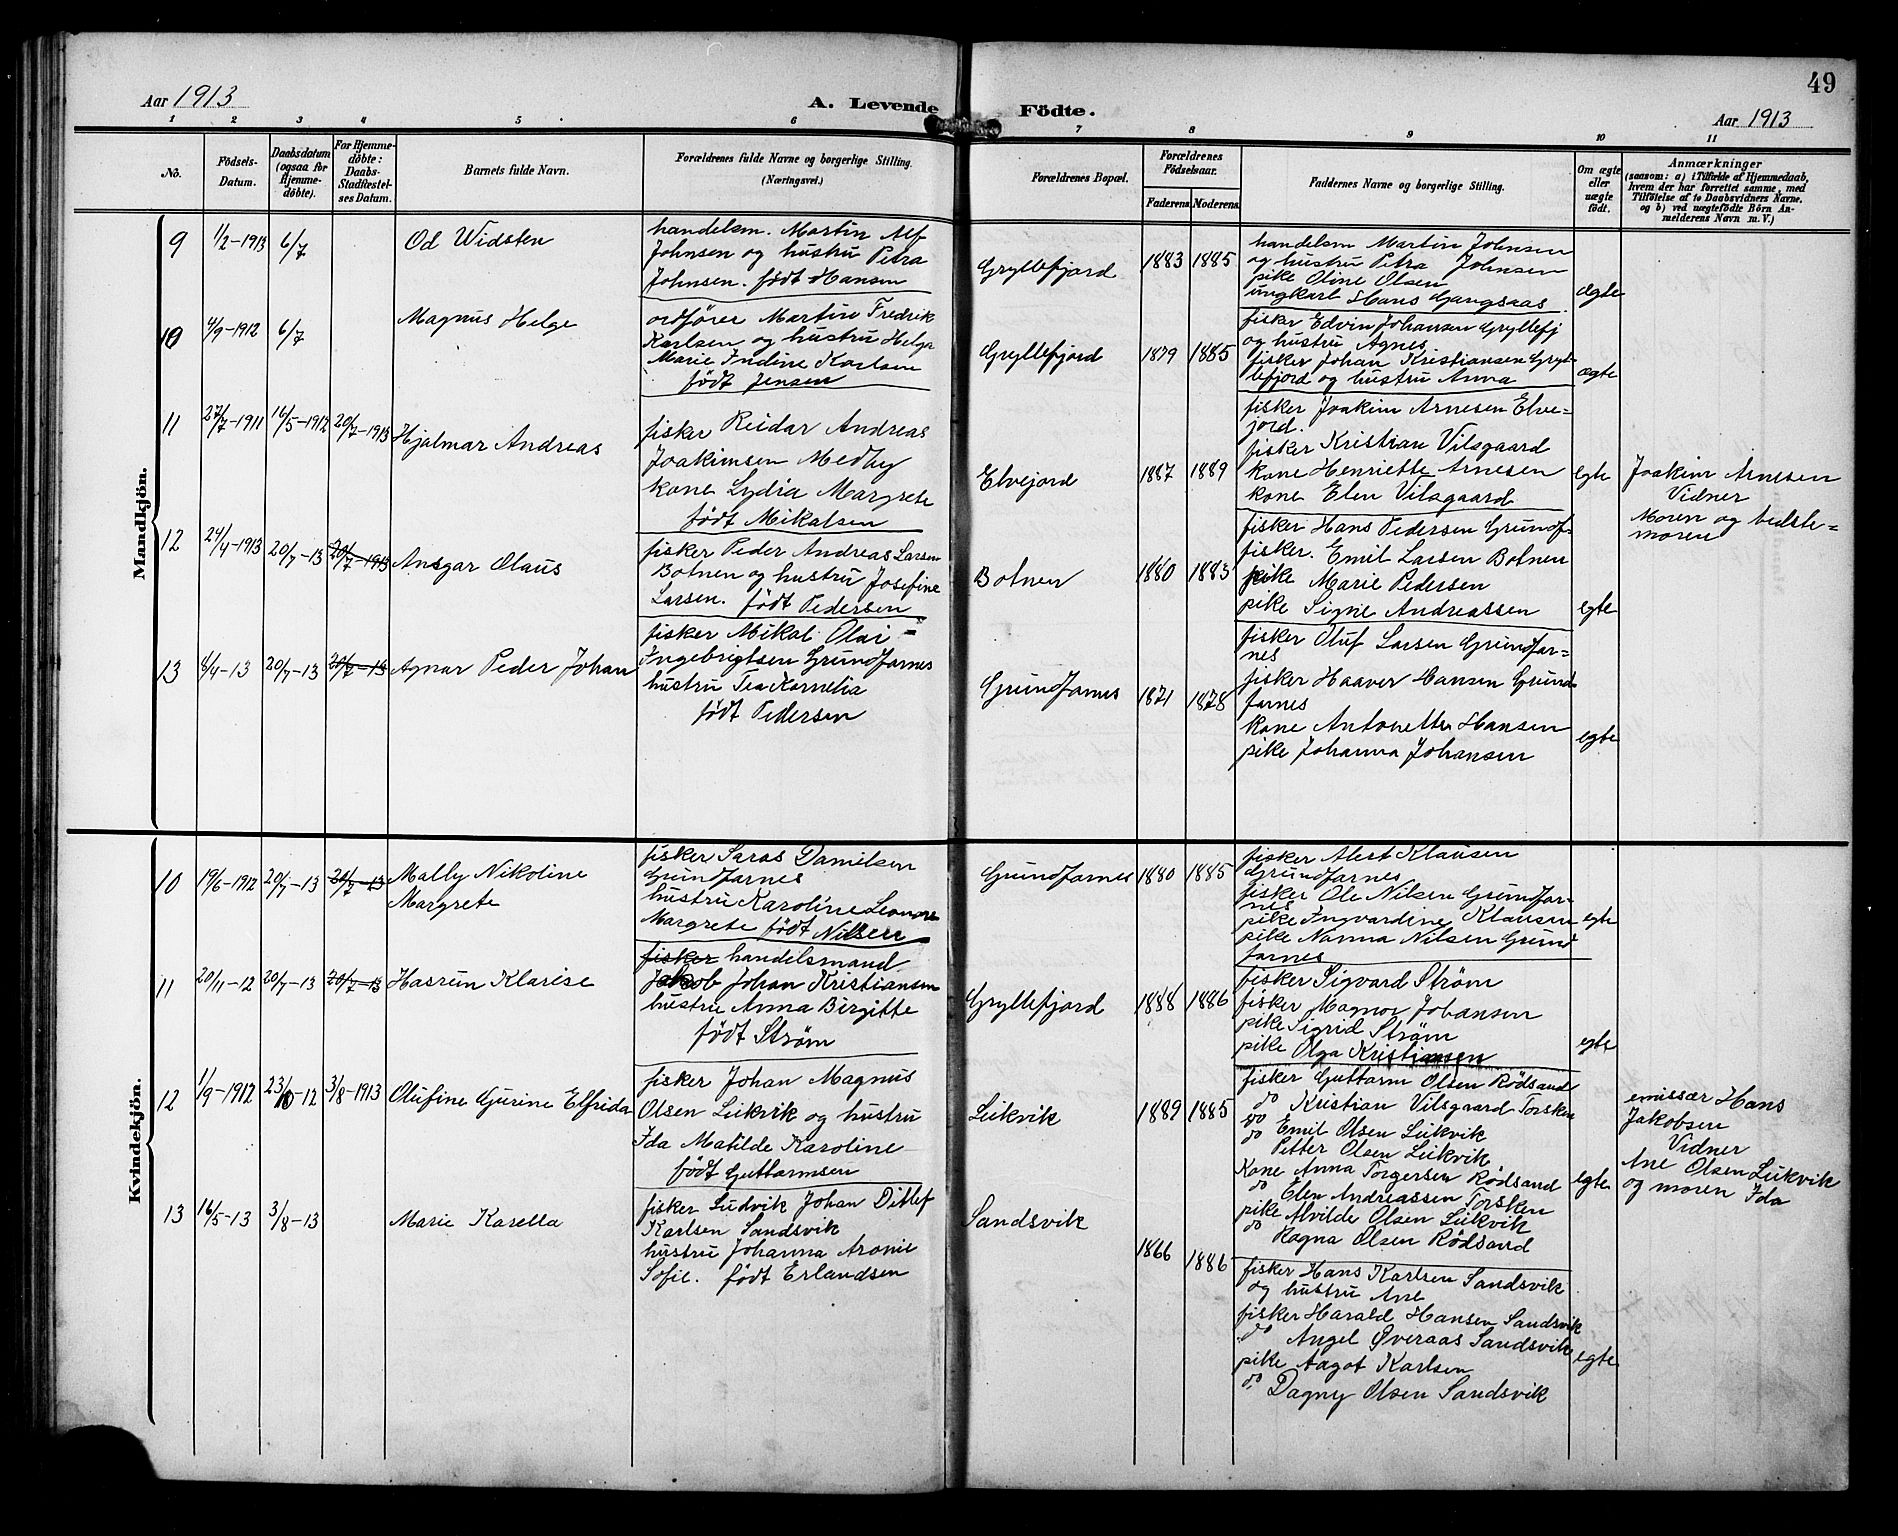 49
Aar 1913
A. Levende Födte.
Aar 1913
1 2 3 4 5 6 7 8 9 10 11
No.
Födsels-
Datum.
Daabsdatum
(ogsaa for
Hjemme-
döbte).
For Hjemme-
döbte:
Daabs-
Stadfæstel-
ses Datum.
Barnets fulde Navn.
Forældrenes fulde Navne og borgerlige Stilling.
(Næringsvei.)
Forældrenes Bopæl.
Forældrenes
Födselsaar.
Faderens. Moderens.
Faddernes Navne og borgerlige Stilling.
Om ægte
eller
uægte
født.
Anmærkninger
(saasom: a) i Tilfælde af Hjemmedaab,
hvem der har forrettet samme, med
Tilföielse af to Daabsvidners Navne,
og b) ved uægtefödte Börn An-
melderens Navn m. V.)
Mandkjön.
9 1/2-1913 6/7 Od Widsten
handelsm. Martin Alf
Johnsen og hustru Petra
Johnsen. født Hansen
Gryllefjord 1883 1885
handelsm Martin Johnsen
og hustru Petra Johnsen
pike Oline Olsen
ungkarl Hans Gangsaas
ægte
10 4/9-1912 6/7 Magnus Helge
ordfører Martin Fredrik
Karlsen og hustru Helga
Marie Indine Karlsen
født Jensen
Gryllefjord 1879 1885
fisker Edvin Johansen Gryllefj
og hustru Agnes
fisker Johan Kristiansen Gryl-
lefjord og hustru Anna
ægte
11 27/7-1911 16/5-1912 20/7-1913 Hjalmar Andreas
fisker Reidar Andreas
Joakimsen Medby
kone Lydia Margrete
født Mikalsen
Elvejord 1887 1889
fisker Joakim Arnesen Elve-
jord.
fisker Kristian Vilsgaard
kone Henriette Arnesen
kone Elen Vilsgaard
egte
Joakim Arnesen
Vidner
Moren og bedste=
moren
12 24/4-1913 20/7-13 20/7-1913 Ansgar Olaus
fisker Peder Andreas Larsen
Botnen og hustru Josefine
Larsen. født Pedersen
Botnen 1880 1883
fisker Hans Pedersen Grundf-
fisker. Emil Larsen Botnen
pike Marie Pedersen
pike Signe Andreassen
egte
13 8/4-13 20/7-13 20/7-13 Agnar Peder Johan
fisker Mikal Olai=
Ingebrigtsen Grundfarnes
hustru Tea Kornelia
født Pedersen
Grundfarnes 1871 1878
fisker Oluf Larsen Grundfar=
nes
fisker Haaver Hansen Grund-
farnes
kone Antonette Hansen
pike Johanna Johansen
egte
Kvindekjön.
10 19/6-1912 20/7-13 20/7-13 Mally Nikoline
Margrete
fisker Saras Danielsen
Grundfarnes
hustru Karoline Leonore
Margrete født Nilsen
Grundfarnes 1880 1885
fisker Alert Klausen
Grundfarnes
fisker Ole Nilsen Grundfar-
nes
pike Ingvardine Klausen
pike Nanna Nilsen Grund
farnes
egte
11 20/11-12 20/7-13 20/7-13 Hasrun Klarise
fisker handelsmand
Jakob Johan Kristiansen
hustru Anna Birgitte
født Strøm
Gryllefjord 1888 1886
fisker Sigvard Strøm
fisker Magnor Johansen
pike Sigrid Strøm
pike Olga Kristiansen
egte
12 1/9-1912 23/10-12 3/8-1913 Olufine Gurine Elfrida
fisker Johan Magnus
Olsen Leikvik og hustru
Ida Matilde Karoline
født Guttormsen
Leikvik 1889 1885
fisker Guttorm Olsen Rödsand
do Kristian Vilsgaard Torsken
do Emil Olsen Leikvik
do Petter Olsen Leikvik
Kone Anna Torgersen Rödsand
do Elen Andreassen Torsken
pike Alvilde Olsen Leikvik
do Ragna Olsen Rödsand
egte
emissær Hans
Jakobsen
Vidner
Ane Olsen Leikvik
og moren Ida
13 16/5-13 3/8-13 Marie Karella
fisker Ludvik Johan Ditlef
Karlsen Sandsvik
hustru Johanna Aronie
Sofie. født Erlandsen
Sandsvik 1866 1886
fisker Hans Karlsen Sandsvik
og hustru Ane
fisker Harald Hansen Sandsvik
do Angel Øveraas Sandsvik
pike Aagot Karlsen
do Dagny Olsen Sandsvik
egte